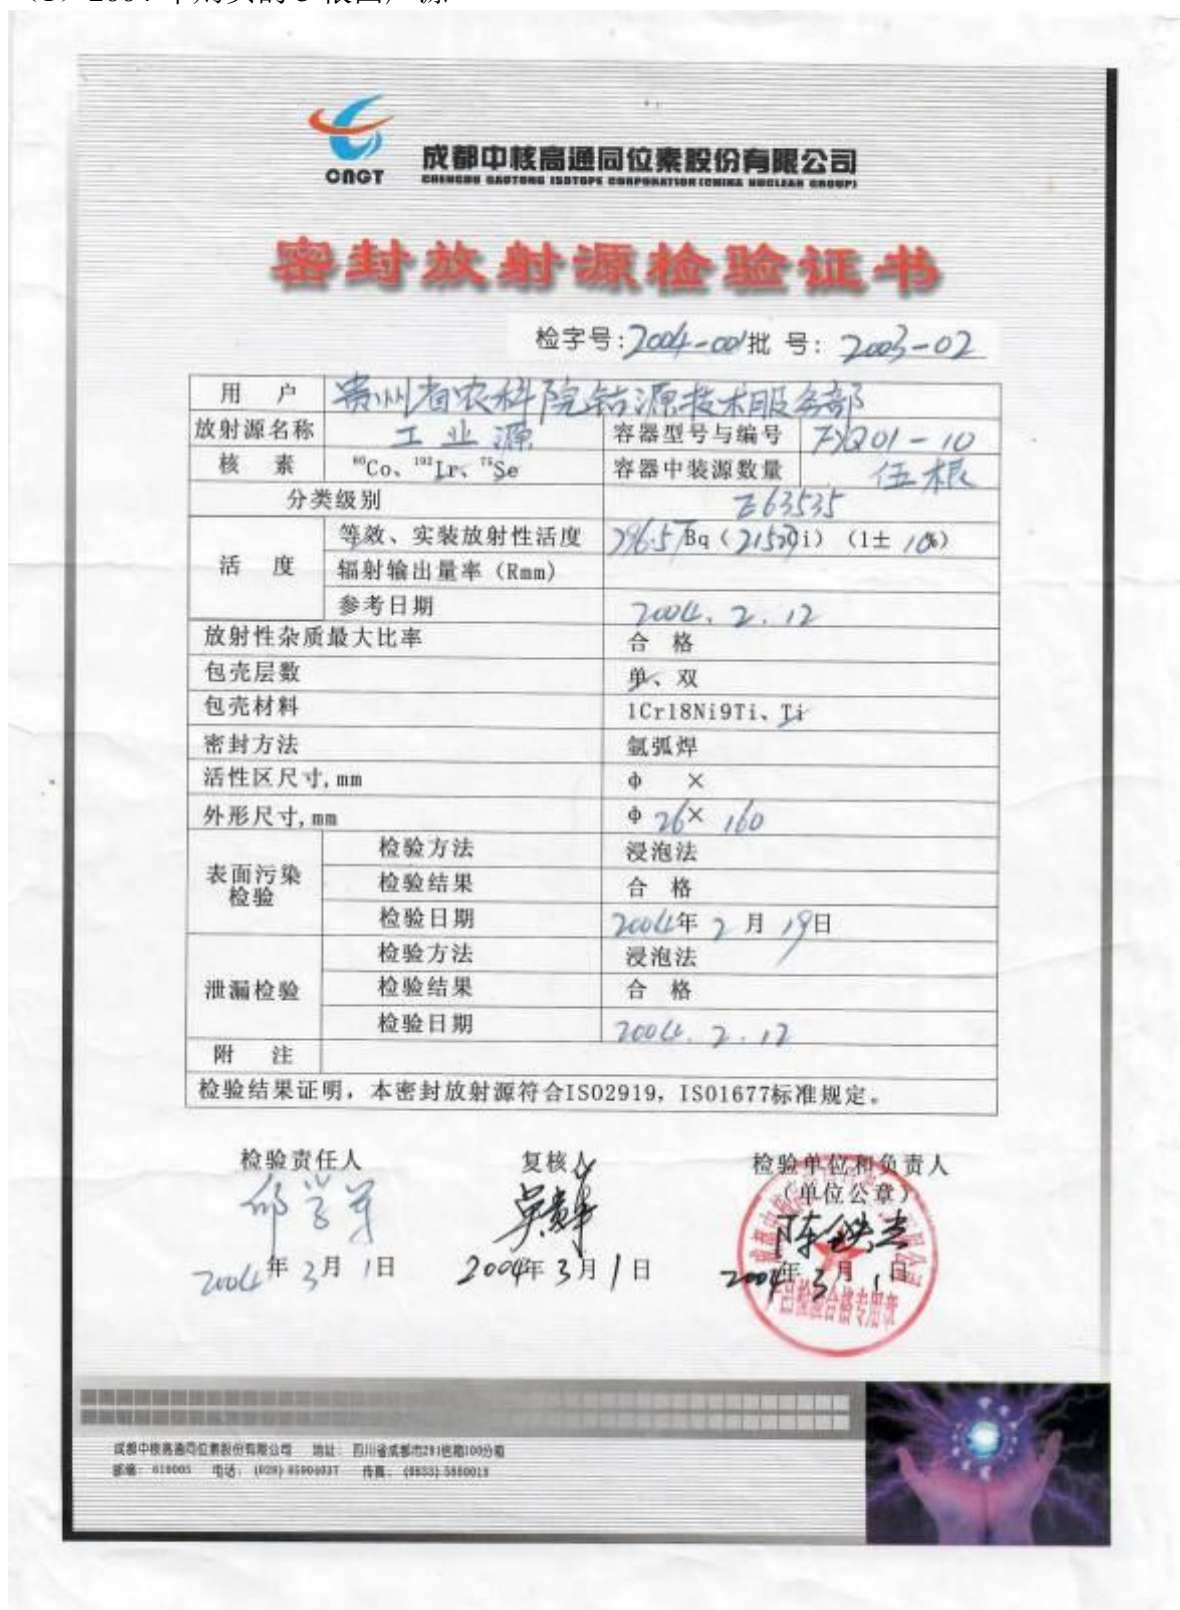 CNGT
成都中核高通同位素股份有限公司
CHENGDU GAOTONG ISOTOPE CORPORATION (CHINA NUCLEAR GROUP)
密封放射源检验证书
检字号:2004-001 批 号: 2003-02
用 户 贵州省农科院钴源技术服务部
放射源名称 工业源 容器型号与编号 FYQ01-10
核 素 ⁶⁰Co、¹⁹²Ir、⁷⁵Se 容器中装源数量 伍根
分类级别 E63535
活 度 等效、实装放射性活度 796.5TBq(21529Ci)(1± 10%)
辐射输出量率(Rmm)
参考日期 2004.2.12
放射性杂质最大比率 合 格
包壳层数 单、双
包壳材料 1Cr18Ni9Ti、Ti
密封方法 氩弧焊
活性区尺寸,mm Φ ×
外形尺寸,mm Φ 26× 160
表面污染检验 检验方法 浸泡法
检验结果 合 格
检验日期 2004年 2 月 19日
泄漏检验 检验方法 浸泡法
检验结果 合 格
检验日期 2004.2.12
附 注
检验结果证明,本密封放射源符合ISO2919, ISO1677标准规定。
检验责任人 复核人 检验单位和负责人
(单位公章)
2004年 3月 1日 2004年 3月 1日 2004年 3月 1日
产品检验合格专用章
成都中核高通同位素股份有限公司 地址: 四川省成都市291信箱100分箱
邮编: 610005 电话: (028) 85904037 传真: (0833) 5880018